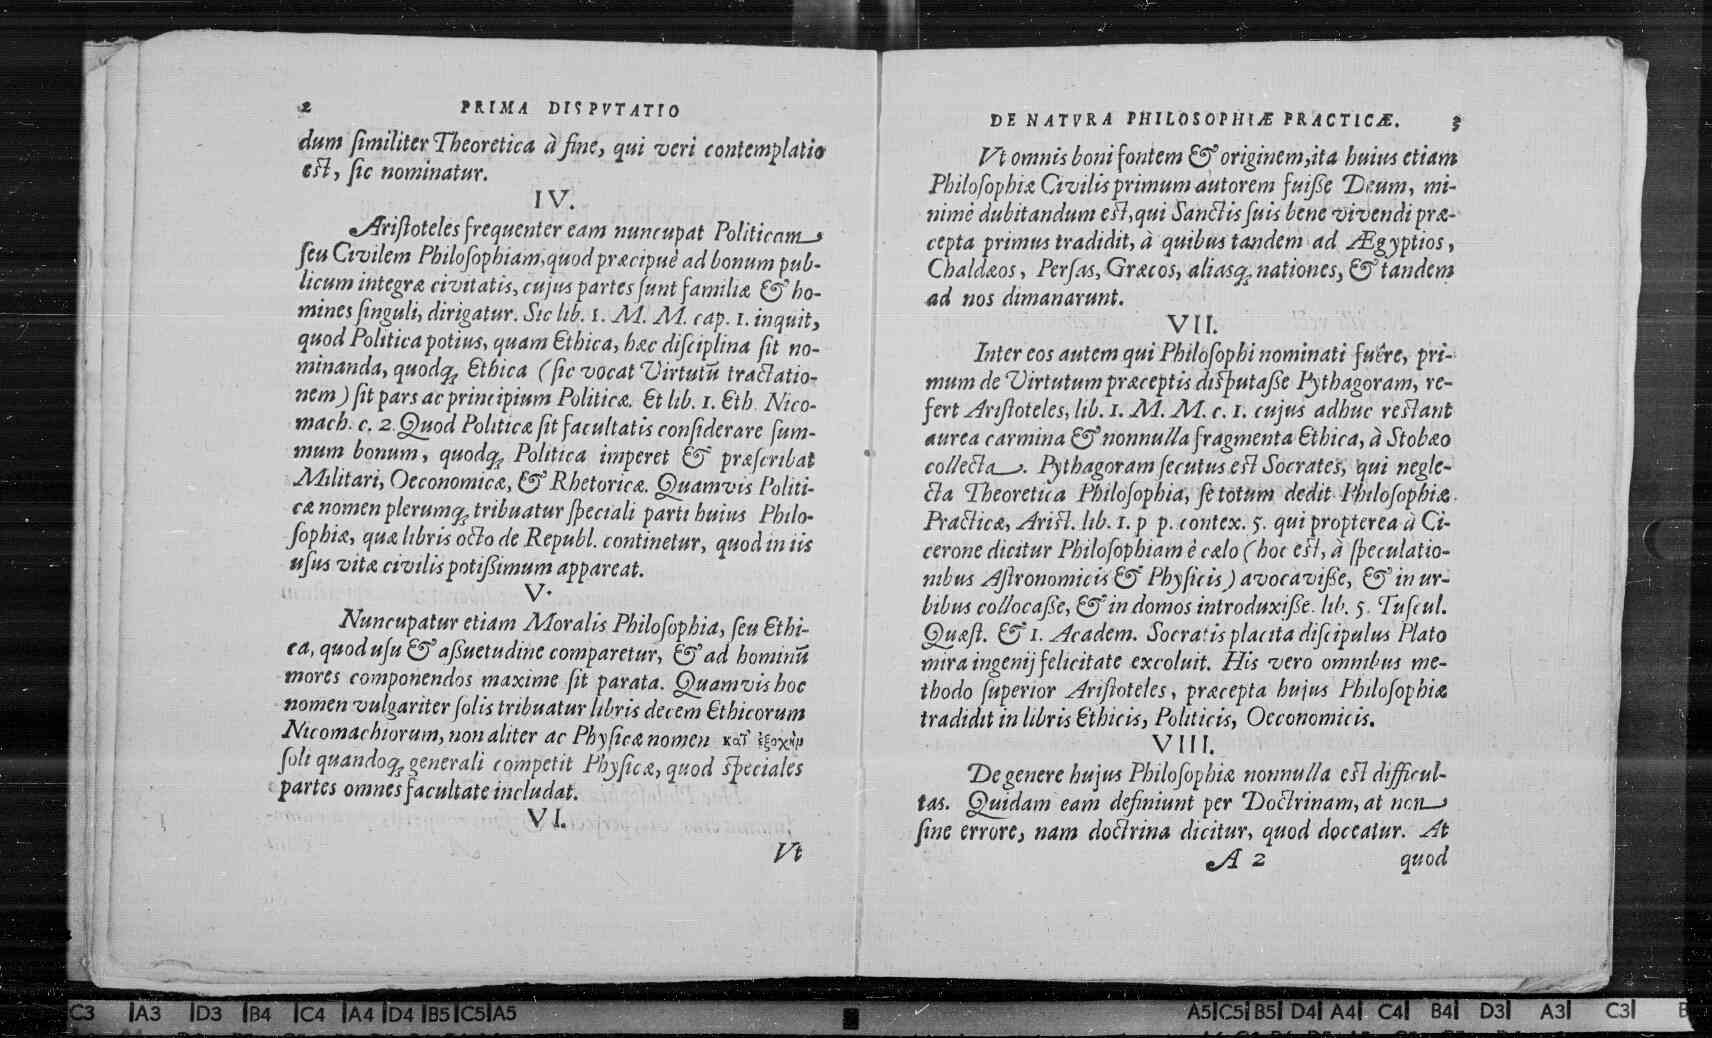 2 PRIMA DISPVTATIO
dum ſimiliter Theoretica à fine, qui veri contemplatio
eſt, ſic nominatur.
IV.
Ariſtoteles frequenter eam nuncupat Politicam
ſeu Civilem Philoſophiam, quod præcipuè ad bonum pub-
licum integræ civitatis, cujus partes ſunt familiæ & ho-
mines ſinguli, dirigatur. Sic lib. 1. M. M. cap. 1. inquit,
quod Politica potius, quam Ethica, hæc diſciplina ſit no-
minanda, quodq́; Ethica (ſic vocat Virtutū tractatio-
nem) ſit pars ac principium Politicæ. Et lib. 1. Eth. Nico-
mach. c. 2. Quod Politicæ ſit facultatis conſiderare ſum-
mum bonum, quodq́; Politica imperet & præſcribat
Militari, Oeconomicæ, & Rhetoricæ. Quamvis Politi-
cæ nomen plerumq́; tribuatur ſpeciali parti huius Philo-
ſophiæ, quæ libris octo de Republ. continetur, quod in iis
uſus vitæ civilis potiſſimum appareat.
V.
Nuncupatur etiam Moralis Philoſophia, ſeu Ethi-
ca, quod uſu & aſſuetudine comparetur, & ad hominū
mores componendos maxime ſit parata. Quamvis hoc
nomen vulgariter ſolis tribuatur libris decem Ethicorum
Nicomachiorum, non aliter ac Phyſicæ nomen κατ' ἐξοχὴν
ſoli quandoq́; generali competit Phyſicæ, quod ſpeciales
partes omnes facultate includat.
VI.
Vt
DE NATVRA PHILOSOPHIÆ PRACTICÆ. 3
Vt omnis boni fontem & originem, ita huius etiam
Philoſophiæ Civilis primum autorem fuiſſe Deum, mi-
nimè dubitandum eſt, qui Sanctis ſuis bene vivendi præ-
cepta primus tradidit, à quibus tandem ad Ægyptios,
Chaldæos, Perſas, Græcos, aliasq́; nationes, & tandem
ad nos dimanarunt.
VII.
Inter eos autem qui Philoſophi nominati fuêre, pri-
mum de Virtutum præceptis diſputaſſe Pythagoram, re-
fert Ariſtoteles, lib. 1. M. M. c. 1. cujus adhuc reſtant
aurea carmina & nonnulla fragmenta Ethica, à Stobæo
collecta. Pythagoram ſecutus eſt Socrates, qui negle-
cta Theoretica Philoſophia, ſe totum dedit Philoſophiæ
Practicæ, Ariſt. lib. 1. p p. contex. 5. qui propterea à Ci-
cerone dicitur Philoſophiam è cælo (hoc eſt, à ſpeculatio-
nibus Aſtronomicis & Phyſicis) avocaviſſe, & in ur-
bibus collocaſſe, & in domos introduxiſſe. lib. 5. Tuſcul.
Quæſt. & 1. Academ. Socratis placita diſcipulus Plato
mira ingenij felicitate excoluit. His vero omnibus me-
thodo ſuperior Ariſtoteles, præcepta hujus Philoſophiæ
tradidit in libris Ethicis, Politicis, Oeconomicis.
VIII.
De genere hujus Philoſophiæ nonnulla eſt difficul-
tas. Quidam eam definiunt per Doctrinam, at non
ſine errore, nam doctrina dicitur, quod doceatur. At
A 2 quod
C3 A3 D3 B4 C4 A4 D4 B5 C5 A5 A5 C5 B5 D4 A4 C4 B4 D3 A3 C3 B